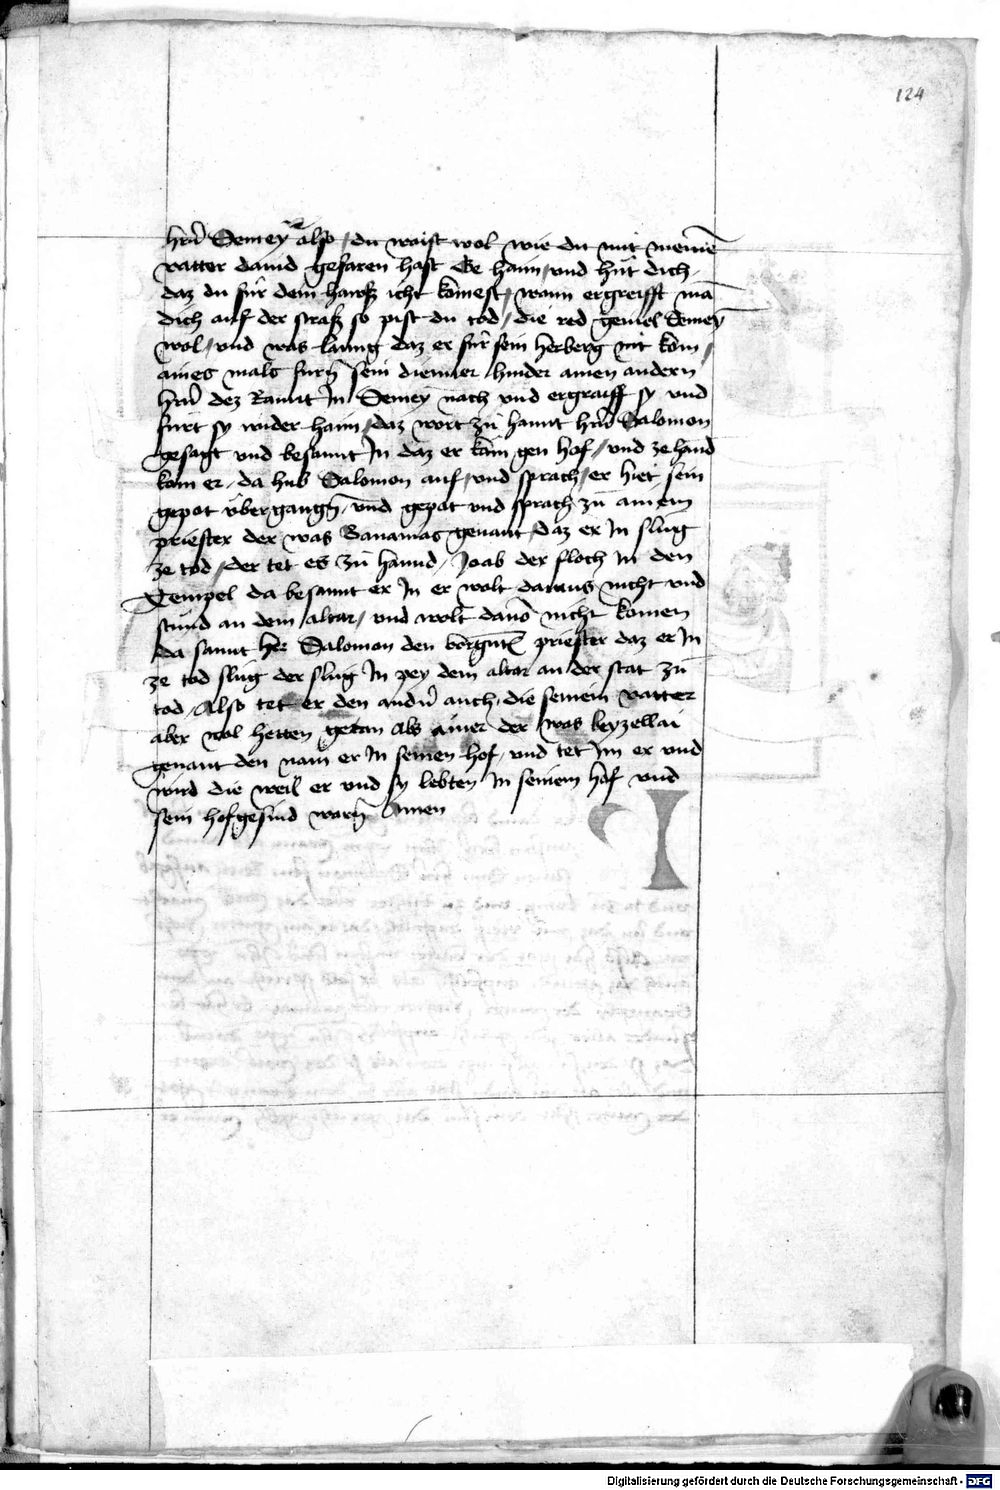 124
hrn̄ Semey also / du waist wol wie du mit meinē
vatter dauid gefaren hast Ge haim / vnd hüt dich
daz du für dein hawß icht komest / wann ergreifft mā
dich auf der straß so pist du tod / die red geuiel Semey
wol / vnd was lanng daz er für sein herberg nit kom /
aines mals furn̄ sein diennier hinder ainen andern
hrn̄ dez Rannt In Semey nach vnd ergraiff sy vnd
fürt sy wider haim / daz wort zū hannt hrn̄ Salomon
gesagt vnd besannt In daz er kām gen hof / vnd zehand
kom er / da hub Salomon auf / vnd sprach / er hiet sein
gepot übergangn̄ / vnd gepot vnd sprach zū ainem
priester der was Bananias genant / daz er In slüg
ze tod / der tet es zū hannd / Joab der floch In den
Tempel da besannt er In er wolt daraus nicht vnd
stūnd an dem altar / vnd wolt dauō nicht komen
da sannt her Salomon den priester daz er In
ze tod slüg der slüg In pey dem altar an der stat zū
tod / Also tet er den andn̄ auch / die seinem vatter
aber wol hetten getan Als ainer der was beyzellai
genant den nam er In seinen hof / vnd tet Im er vnd
wird die weil er vnd sy lebten In seinem hof vnd
sein hofgesind warn̄ Amen
Digitalisierung gefördert durch die Deutsche Forschungsgemeinschaft - DFG